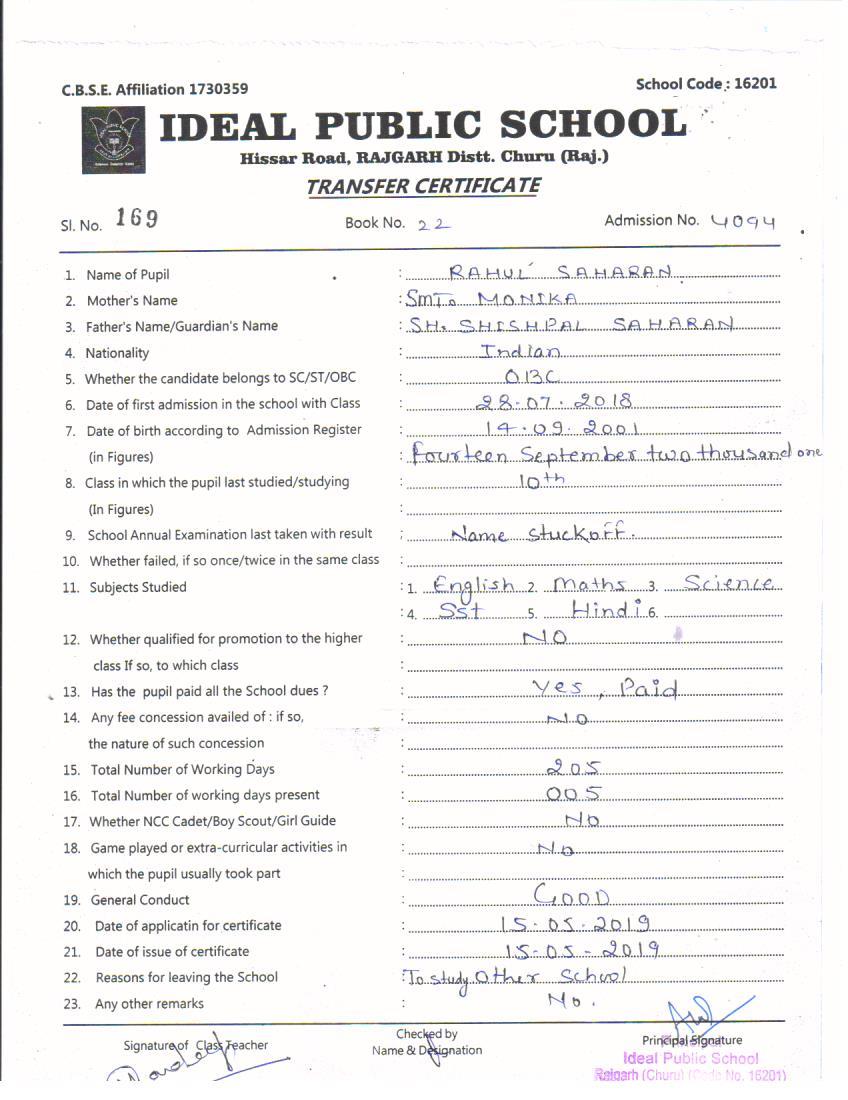 C.B.S.E. Affiliation 1730359 School Code : 16201
IDEAL PUBLIC SCHOOL
Hissar Road, RAJGARH Distt. Churu (Raj.)
TRANSFER CERTIFICATE
Sl. No. 169 Book No. 22 Admission No. 4094
1. Name of Pupil : RAHUL SAHARAN
2. Mother's Name : SMT. MONIKA
3. Father's Name/Guardian's Name : SH. SHISHPAL SAHARAN
4. Nationality : Indian
5. Whether the candidate belongs to SC/ST/OBC : OBC
6. Date of first admission in the school with Class : 28.07.2018
7. Date of birth according to Admission Register : 14.09.2001
(in Figures) : Fourteen September two thousand one
8. Class in which the pupil last studied/studying : 10th
(In Figures) :
9. School Annual Examination last taken with result : Name Stuckoff.
10. Whether failed, if so once/twice in the same class :
11. Subjects Studied : 1. English 2. Maths 3. Science
: 4. Sst 5. Hindi 6.
12. Whether qualified for promotion to the higher : NO
class If so, to which class :
13. Has the pupil paid all the School dues ? : Yes, Paid
14. Any fee concession availed of : if so, : NO
the nature of such concession :
15. Total Number of Working Days : 205
16. Total Number of working days present : 005
17. Whether NCC Cadet/Boy Scout/Girl Guide : No
18. Game played or extra-curricular activities in : No
which the pupil usually took part :
19. General Conduct : GOOD
20. Date of applicatin for certificate : 15-05-2019
21. Date of issue of certificate : 15-05-2019
22. Reasons for leaving the School : To study Other School
23. Any other remarks : No.
Signature of Class Teacher Checked by Principal Signature
Name & Designation
Ideal Public School
Rajgarh (Churu) (Code No. 16201)